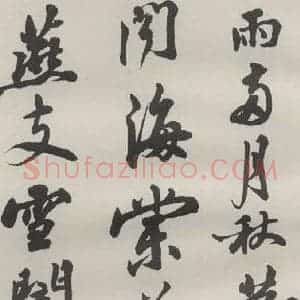 雨兩月秋
聞海棠
燕支雪
Shufaziliao.com